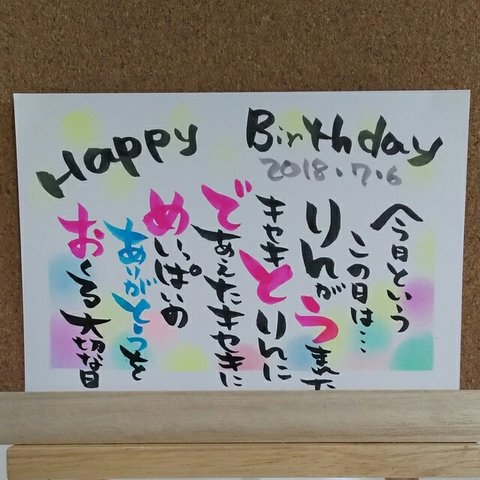 Happy Birthday
2018.7.6
今日という
この日は…
りんがうまれた
キセキとりんに
であえたキセキに
めいっぱいの
ありがとうを
おくる大切な日